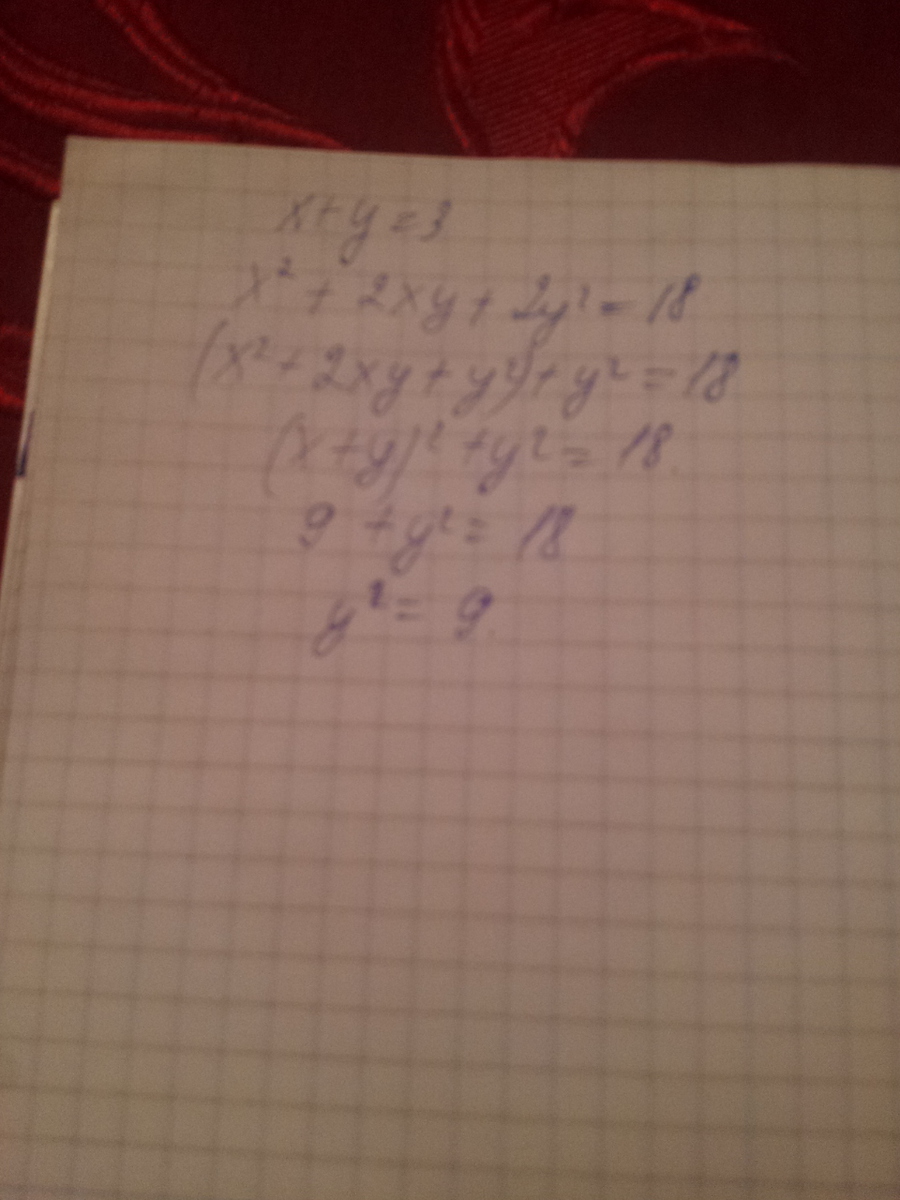 x+y=3
x² + 2xy + 2y² = 18
(x² + 2xy + y²) + y² = 18
(x+y)² + y² = 18.
9 + y² = 18
y² = 9.